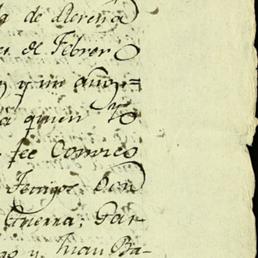 de Llerena
de Febrero
y un años=
a quien Yo
fee Conosco
Testigos Don
Guerra; Gar-
y Juan Ba-